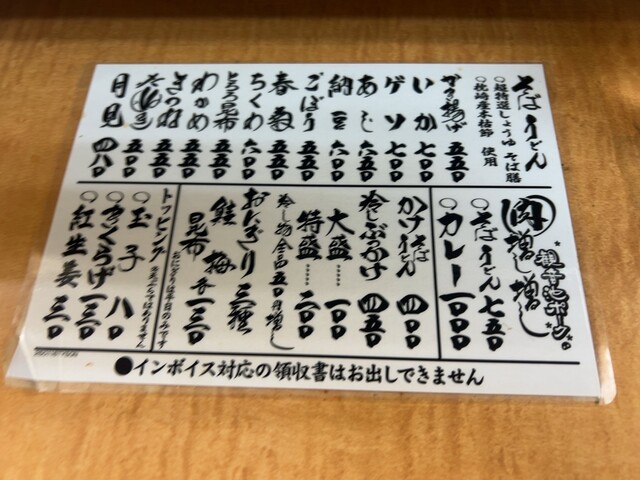 そばうどん
○超特選しょうゆ そば膳
○枕崎産本枯節 使用
かき揚げ 五五〇
いか 七〇〇
ゲソ 七〇〇
あじ 六五〇
納豆 六〇〇
ごぼう 五五〇
春菊 五五〇
ちくわ 六〇〇
とろろ昆布 五五〇
わかめ 五五〇
きつね 五五〇
月見 四八〇
肉増し増し
○そばうどん 七五〇
○カレー 一〇〇〇
かけそばうどん 四〇〇
冷しぶっかけ 四五〇
大盛…… 一〇〇
特盛…… 二〇〇
冷し物全品五〇円増し
おにぎり三種
鮭 梅
昆布 各一三〇
おにぎりは平日のみです
トッピング
○玉子 八〇
○きくらげ 一三〇
○紅生姜 一三〇
●インボイス対応の領収書はお出しできません